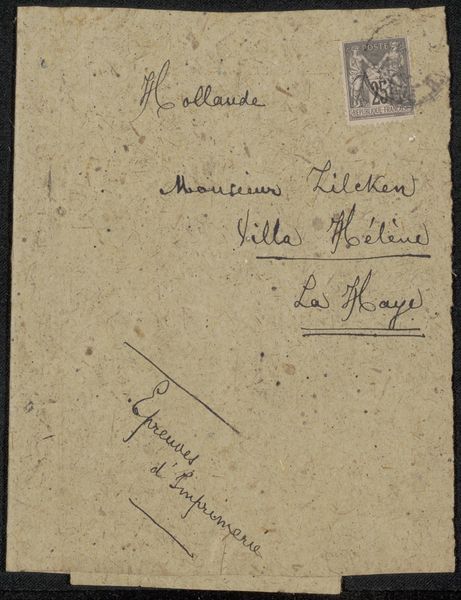 POSTE
25
REPUBLIQUE FRANÇAISE
Hollande
Monsieur Zilcken
Villa Hélène
La Haye
Epreuves
d'Imprimerie